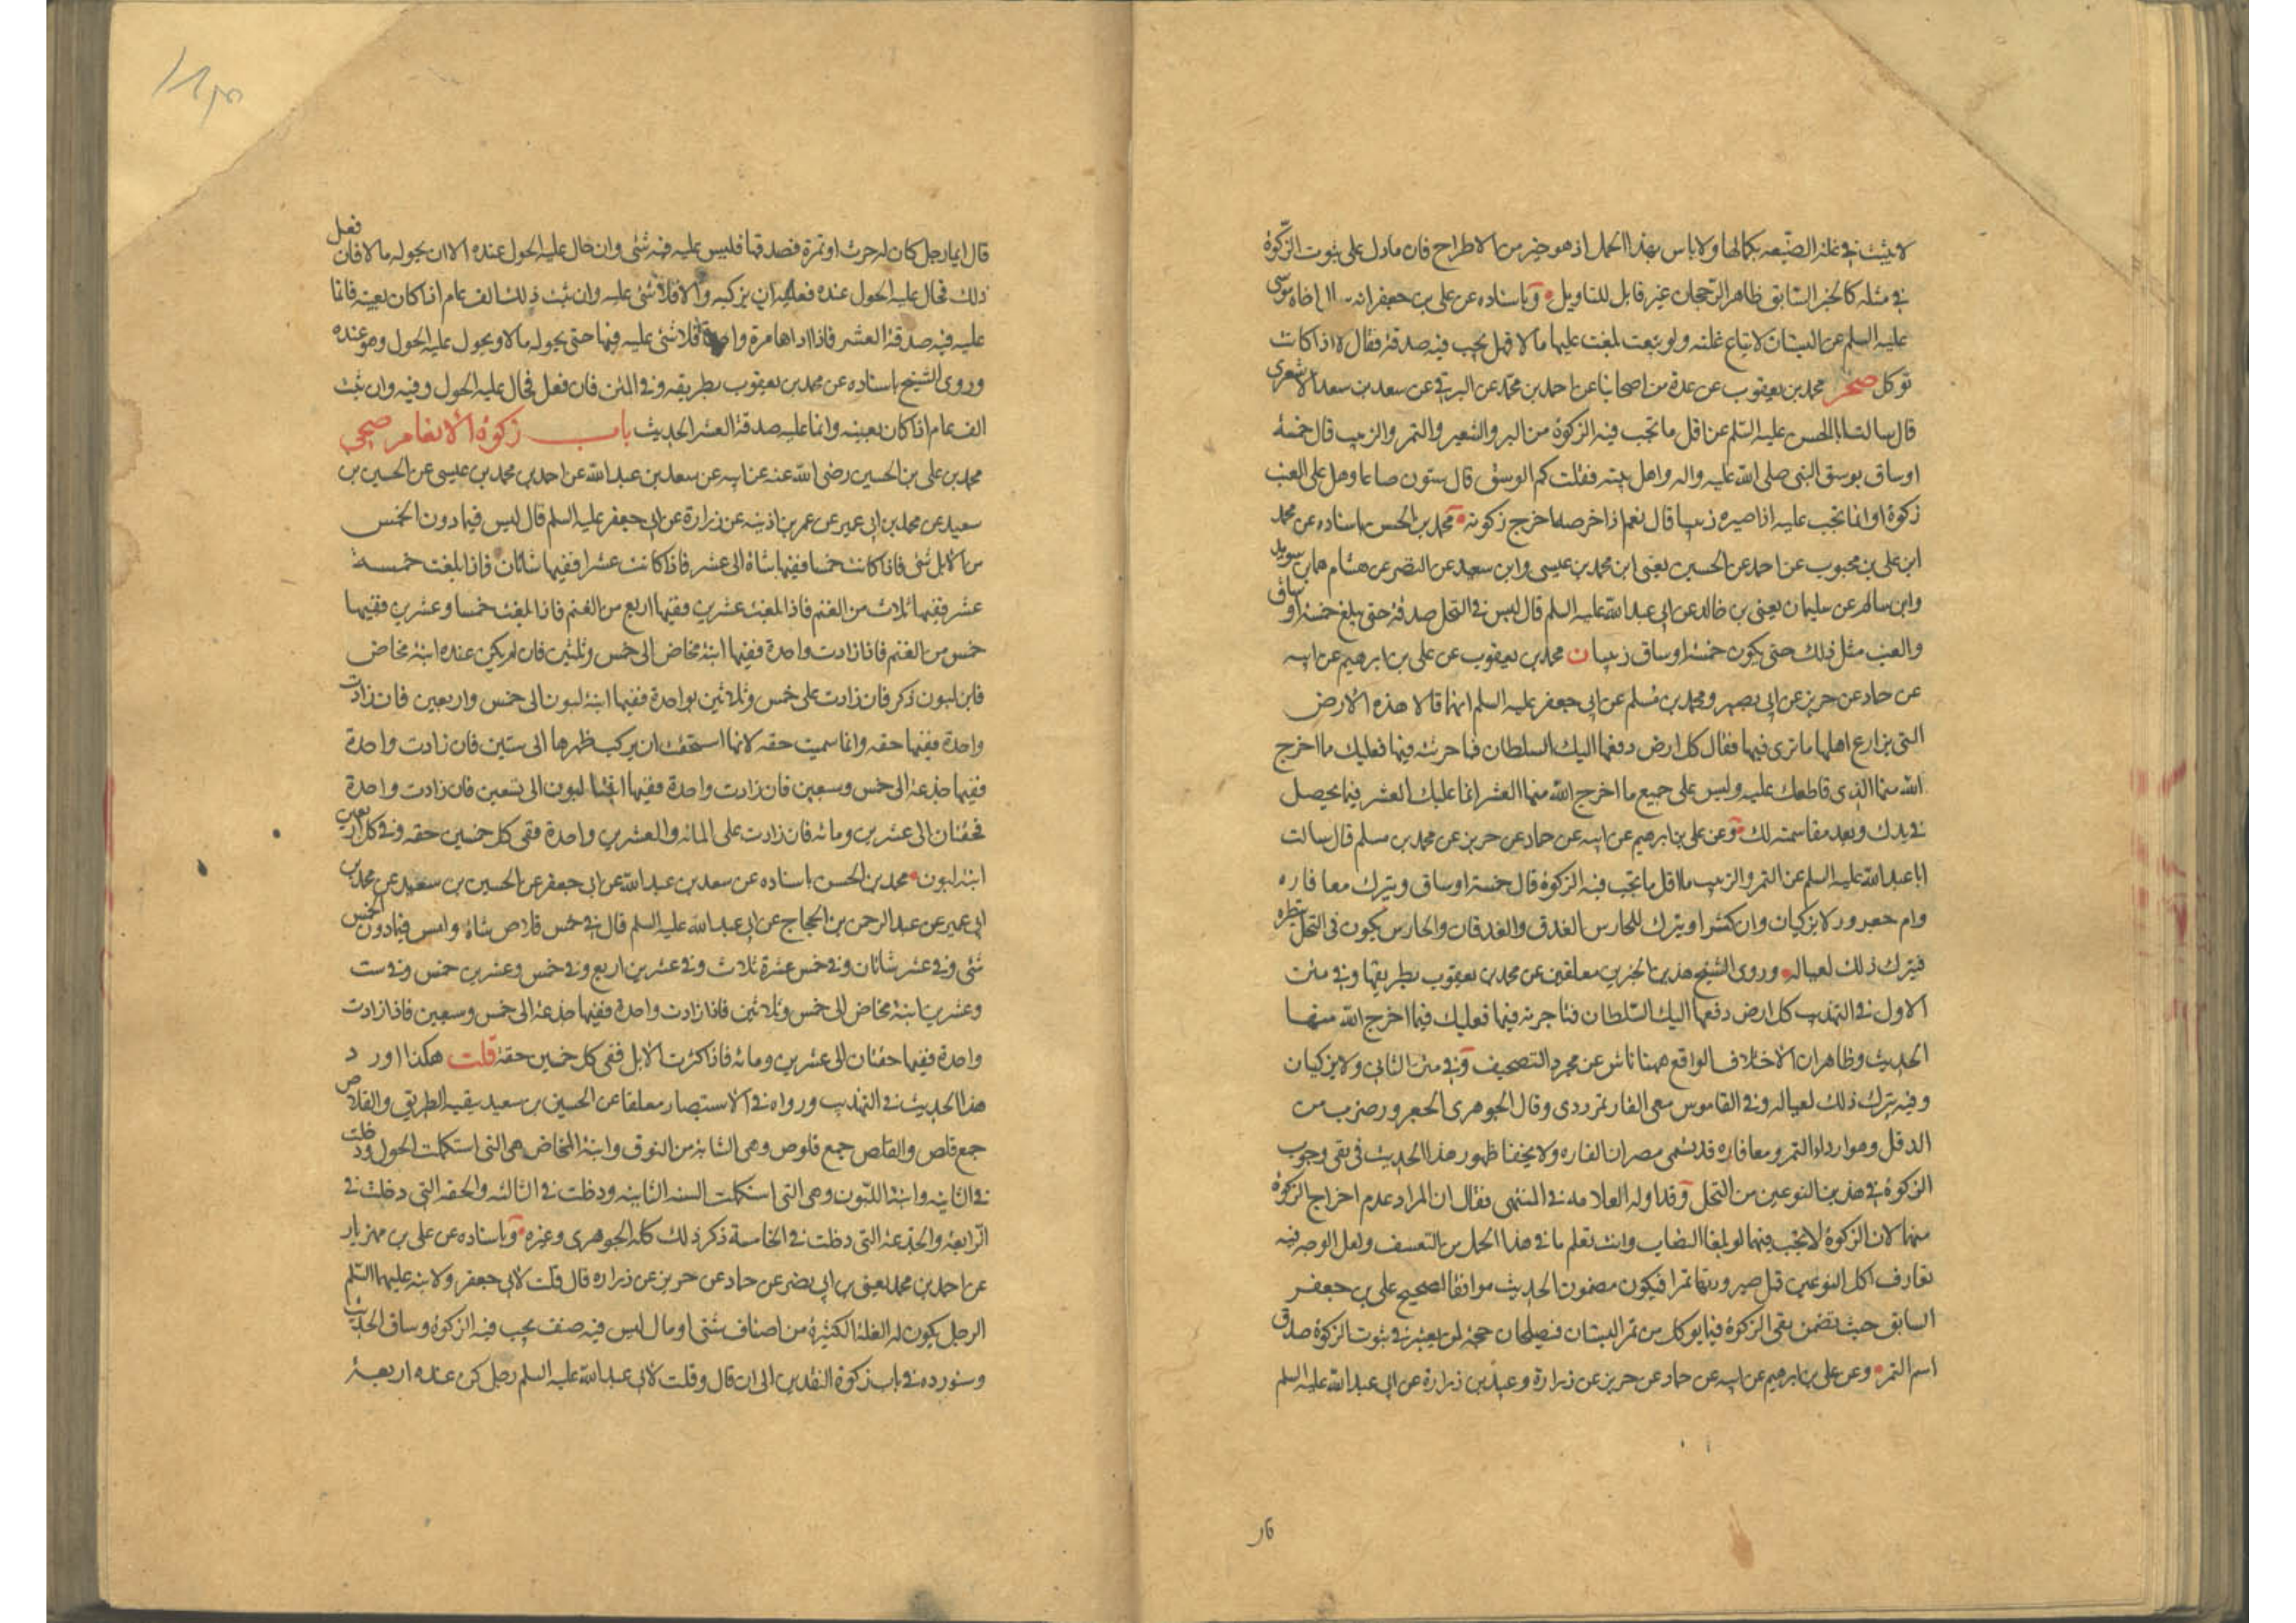 لا يثبت في غلة الضيعه بكمالها ولا باس بهذا الحمل اذ هو خير من الاطراح فان ما دل على ثبوت الزكوة
في مثله كالخبر السابق ظاهر الرجحان غير قابل للتاويل وباسناده عن علي بن جعفر انه اخاه موسى
عليه السلم عن البستان لا تباع غلته ولو بيعت بلغت غلتها مالا فهل يجب فيه صدقة فقال لا اذا كانت
توكل صحر محمد بن يعقوب عن عدة من اصحابنا عن احمد بن محمد عن البرقي عن سعد بن سعد الاشعري
قال سالت ابا الحسن عليه السلم عن اقل ما تجب فيه الزكوة من البر والشعير والتمر والزبيب قال خمسة
اوساق بوسق النبي صلى الله عليه واله واهل بيته فقلت كم الوسق قال ستون صاعا وهل على العنب
زكوة او انما تجب عليه اذا صيره زبيبا قال نعم اذا خرصه اخرج زكوته محمد بن الحسن باسناده عن محمد
ابن علي بن محبوب عن احمد عن الحسين يعني ابن محمد بن عيسى وابن سعيد عن النضر عن هشام هما بن سويد
وابن سالم عن سليمان يعني بن خالد عن ابي عبد الله عليه السلم قال ليس في النخل صدقة حتى يبلغ خمسة اوساق
والعنب مثل ذلك حتى يكون خمسة اوساق زبيبا ن محمد بن يعقوب عن علي بن ابرهيم عن ابيه
عن حماد عن حريز عن ابي بصير ومحمد بن مسلم عن ابي جعفر عليه السلم انهما قالا هذه الارض
التي يزارع اهلها ما ترى فيها فقال كل ارض دفعها اليك السلطان فما حرثته فيها فعليك مما اخرج
الله منها الذي قاطعك عليه وليس على جميع ما اخرج الله منها العشر انما عليك العشر فيما يحصل
في يدك وبعد مقاسمته لك وعن علي بن ابرهيم عن ابيه عن حماد عن حريز عن محمد بن مسلم قال سالت
ابا عبد الله عليه السلم عن التمر والزبيب ما اقل ما تجب فيه الزكوة قال خمسة اوساق ويترك معا فاره
وام جعرور لا يزكيان وان كثرا ويترك للحارس العذق والعذقان والحارس يكون في النخل ينظره
فيترك ذلك لعياله وروى الشيخ هذين الخبرين معلقين عن محمد بن يعقوب بطريقها وفي متن
الاول في التهذيب كل ارض دفعها اليك السلطان فتاجرته فيها فعليك فيما اخرج الله منها
الحديث وظاهر ان الاختلاف الواقع ههنا ناش عن مجرد التصحيف وفي متن الثاني ولا يزكيان
وفيه يترك ذلك لعياله وفي القاموس معى الفار تمر ردى وقال الجوهري الجعرور ضرب من
الدقل وهو اردأ التمر ومعا فاره قد يسمى مصران الفاره ولا يخفا ظهور هذا الحديث في نفى وجوب
الزكوة في هذين النوعين من النخل وقد اوله العلامه في المنتهى فقال ان المراد عدم اخراج الزكوة
منهما لان الزكوة لا تجب فيهما لو بلغا النصاب وانت تعلم ما في هذا الحمل من التعسف ولعل الوجه فيه
تعارف اكل النوعين قبل صيرورتهما تمرا فيكون مضمون الحديث موافقا لصحيح علي بن جعفر
السابق حيث تضمن نفى الزكوة فيما يوكل من ثمر البستان فيصلحان حجة لمن يعتبر في ثبوت الزكوة صدق
اسم التمر وعن علي بن ابرهيم عن ابيه عن حماد عن حريز عن زرارة وعبيد بن زرارة عن ابي عبد الله عليه السلم
قال ايما رجل كان له حرث او تمرة فصدقها فليس عليه فيه شئ وان حال عليه الحول عنده الا ان يحوله مالا فان فعل
ذلك فحال عليه الحول عنده فعليه ان يزكيه والا فلا شئ عليه وان ثبت ذلك الف عام اذا كان بعينه فانما
عليه فيه صدقة العشر فاذا اداها مرة واحدة فلا شئ عليه فيها حتى يحوله مالا ويحول عليه الحول وهو عنده
وروى الشيخ باسناده عن محمد بن يعقوب بطريقه وفي المتن فان فعل فحال عليه الحول وفيه وان ثبت
الف عام اذا كان بعينه وانما عليه صدقة العشر الحديث باب زكوة الانعام صحى
محمد بن علي بن الحسين رضى الله عنه عن ابيه عن سعد بن عبد الله عن احمد بن محمد بن عيسى عن الحسين بن
سعيد عن محمد بن ابي عمير عن عمر بن اذينه عن زرارة عن ابي جعفر عليه السلم قال ليس فيما دون الخمس
من الابل شئ فاذا كانت خمسا ففيها شاة الى عشر فاذا كانت عشرا ففيها شاتان فاذا بلغت خمسة
عشر ففيها ثلاث من الغنم فاذا بلغت عشرين ففيها اربع من الغنم فاذا بلغت خمسا وعشرين ففيها
خمس من الغنم فاذا زادت واحدة ففيها ابنة مخاض الى خمس وثلثين فان لم يكن عنده ابنة مخاض
فابن لبون ذكر فان زادت على خمس وثلاثين بواحدة ففيها ابنة لبون الى خمس واربعين فان زادت
واحدة ففيها حقه وانما سميت حقه لانها استحقت ان يركب ظهرها الى ستين فان زادت واحدة
ففيها جذعة الى خمس وسبعين فان زادت واحدة ففيها ابنتا لبون الى تسعين فان زادت واحدة
فحقتان الى عشرين ومائه فان زادت على المائه والعشرين واحدة ففى كل خمسين حقه وفي كل اربعين
ابنة لبون محمد بن الحسن باسناده عن سعد بن عبد الله عن ابي جعفر عن الحسين بن سعيد عن محمد بن
ابي عمير عن عبد الرحمن بن الحجاج عن ابي عبد الله عليه السلم قال في خمس قلاص شاة وليس فيما دون الخمس
شئ وفي عشر شاتان وفي خمس عشرة ثلاث وفي عشرين اربع وفي خمس وعشرين خمس وفي ست
وعشرين ابنة مخاض الى خمس وثلاثين فاذا زادت واحدة ففيها جذعة الى خمس وسبعين فاذا زادت
واحدة ففيها حقتان الى عشرين ومائه فاذا كثرت الابل ففى كل خمسين حقة قلت هكذا اورد
هذا الحديث في التهذيب ورواه في الاستبصار معلقا عن الحسين بن سعيد ببقيه الطريق والقلاص
جمع قلص والقلص جمع قلوص وهى الشابة من النوق وابنة المخاض هى التى استكملت الحول ودخلت
في الثانيه وابنة اللبون وهى التى استكملت السنه الثانيه ودخلت في الثالثه والحقه التى دخلت في
الرابعة والجذعه التى دخلت في الخامسة ذكر ذلك كله الجوهري وغيره وباسناده عن علي بن مهزيار
عن احمد بن محمد يعني بن ابي نصر عن حماد عن حريز عن زراره قال قلت لابي جعفر ولابنه عليهما السلم
الرجل يكون له الغلة الكثيرة من اصناف شتى او مال ليس فيه صنف يجب فيه الزكوة وساق الحديث
وسنورده في باب زكوة النقدين الى ان قال وقلت لابي عبد الله عليه السلم رجل كن عنده اربعة